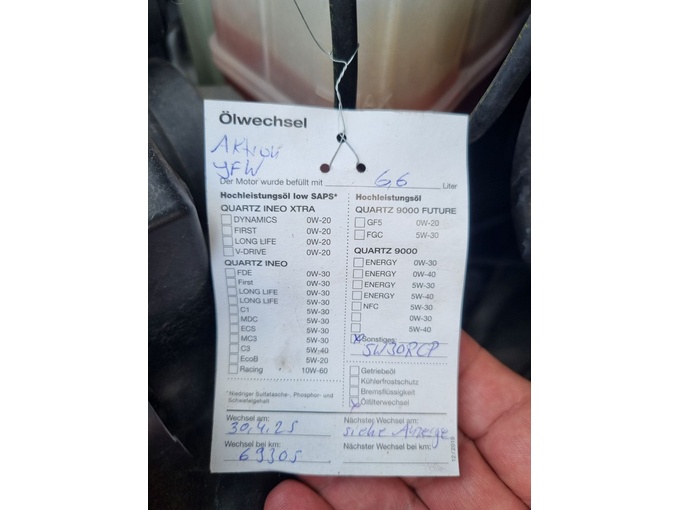 Ölwechsel
Aktion
Der Motor wurde befüllt mit 6,6 Liter
Hochleistungsöl low SAPS*
QUARTZ INEO XTRA
DYNAMICS 0W-20
FIRST 0W-20
LONG LIFE 0W-20
V-DRIVE 0W-20
QUARTZ INEO
FDE 0W-30
First 0W-30
LONG LIFE 0W-30
LONG LIFE 5W-30
C1 5W-30
MDC 5W-30
ECS 5W-30
MC3 5W-30
C3 5W-40
EcoB 5W-20
Racing 10W-60
*Niedriger Sulfatasche-, Phosphor- und
Schwefelgehalt
Hochleistungsöl
QUARTZ 9000 FUTURE
GF5 0W-20
FGC 5W-30
QUARTZ 9000
ENERGY 0W-30
ENERGY 0W-40
ENERGY 5W-30
ENERGY 5W-40
NFC 5W-30
0W-30
5W-40
Sonstiges:
5W30RCP
Getriebeöl
Kühlerfrostschutz
Bremsflüssigkeit
Ölfilterwechsel
Wechsel am:
30.4.25
Wechsel bei km:
69305
Nächster Wechsel am:
siehe Anzeige
Nächster Wechsel bei km:
12/2019